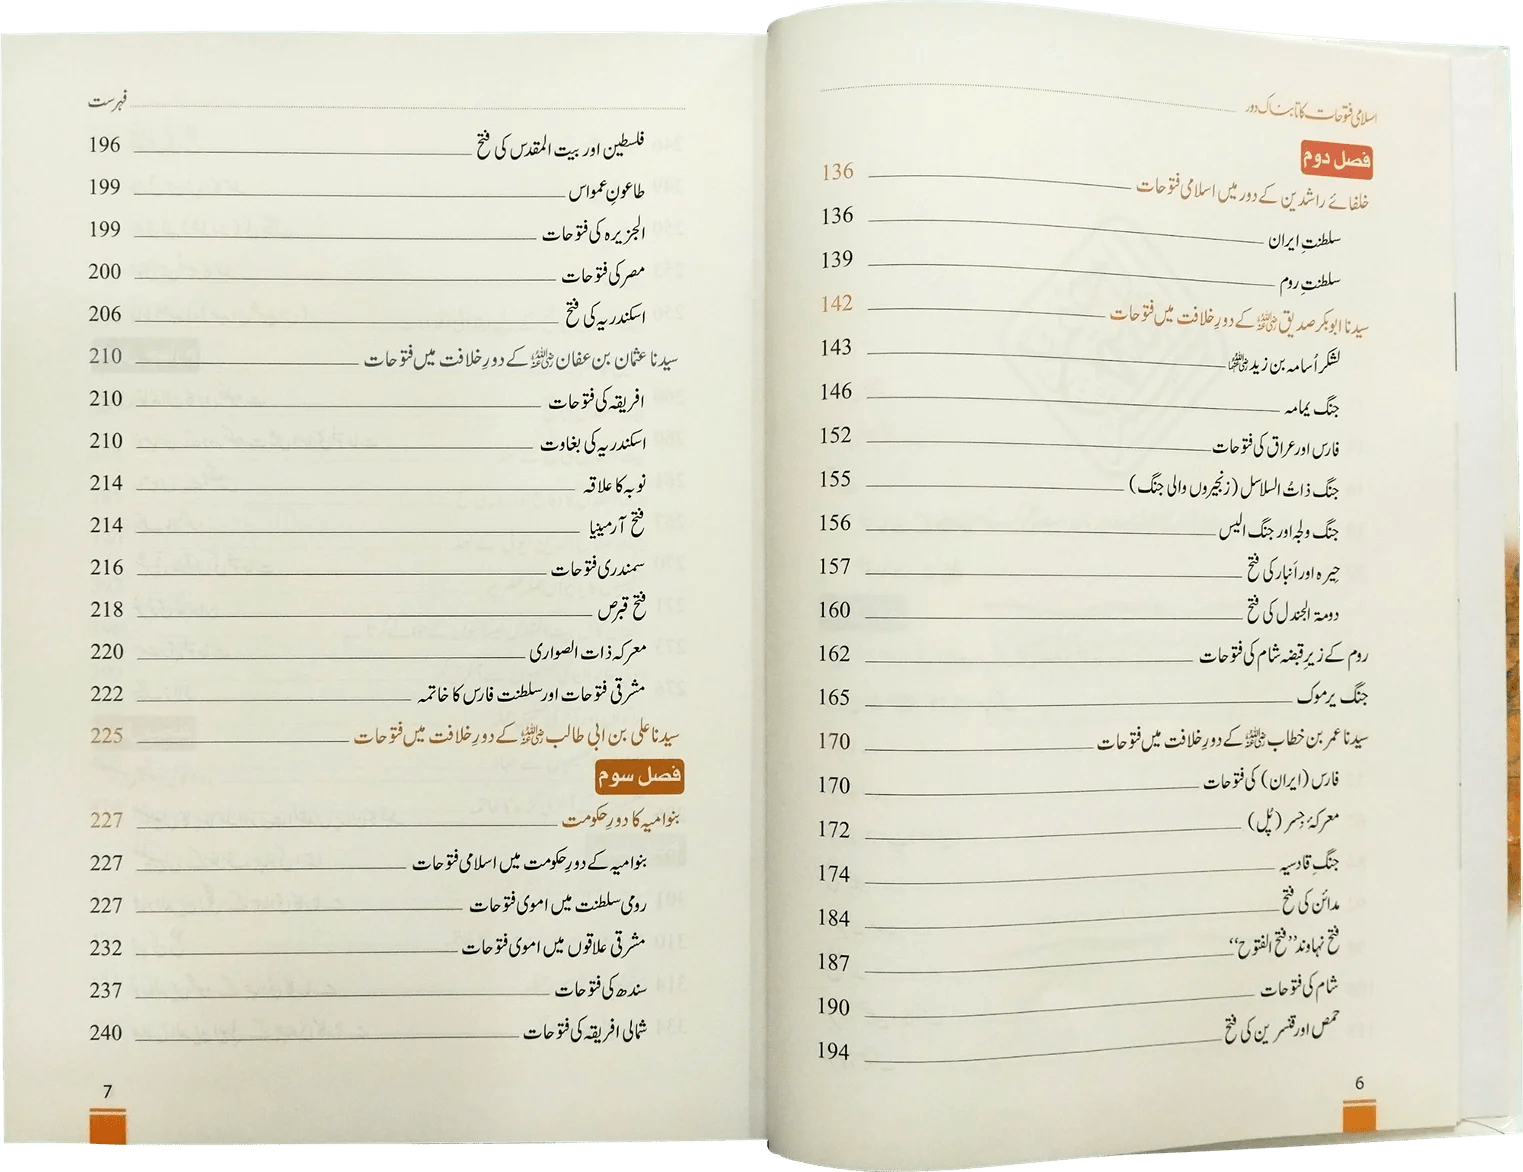 اسلامی فتوحات کا تابناک دور
فصل دوم
خلفائے راشدین کے دور میں اسلامی فتوحات 136
سلطنتِ ایران 136
سلطنتِ روم 139
سیدنا ابوبکر صدیق رضی اللہ عنہ کے دورِ خلافت میں فتوحات 142
لشکر اُسامہ بن زید رضی اللہ عنہما 143
جنگ یمامہ 146
فارس اور عراق کی فتوحات 152
جنگ ذاتُ السلاسل (زنجیروں والی جنگ) 155
جنگ ولجہ اور جنگ الیس 156
حِیرہ اور اَنبار کی فتح 157
دومۃ الجندل کی فتح 160
روم کے زیرِ قبضہ شام کی فتوحات 162
جنگ یرموک 165
سیدنا عمر بن خطاب رضی اللہ عنہ کے دورِ خلافت میں فتوحات 170
فارس (ایران) کی فتوحات 170
معرکۂ جِسر (پُل) 172
جنگِ قادسیہ 174
مدائن کی فتح 184
فتح نہاوند ”فتح الفتوح“ 187
شام کی فتوحات 190
حمص اور قنسرین کی فتح 194
6
فہرست
فلسطین اور بیت المقدس کی فتح 196
طاعونِ عمواس 199
الجزیرہ کی فتوحات 199
مصر کی فتوحات 200
اسکندریہ کی فتح 206
سیدنا عثمان بن عفان رضی اللہ عنہ کے دورِ خلافت میں فتوحات 210
افریقہ کی فتوحات 210
اسکندریہ کی بغاوت 210
نوبہ کا علاقہ 214
فتح آرمینیا 214
سمندری فتوحات 216
فتح قبرص 218
معرکہ ذات الصواری 220
مشرقی فتوحات اور سلطنت فارس کا خاتمہ 222
سیدنا علی بن ابی طالب رضی اللہ عنہ کے دورِ خلافت میں فتوحات 225
فصل سوم
بنوامیہ کا دورِ حکومت 227
بنوامیہ کے دورِ حکومت میں اسلامی فتوحات 227
رومی سلطنت میں اموی فتوحات 227
مشرقی علاقوں میں اموی فتوحات 232
سندھ کی فتوحات 237
شمالی افریقہ کی فتوحات 240
7